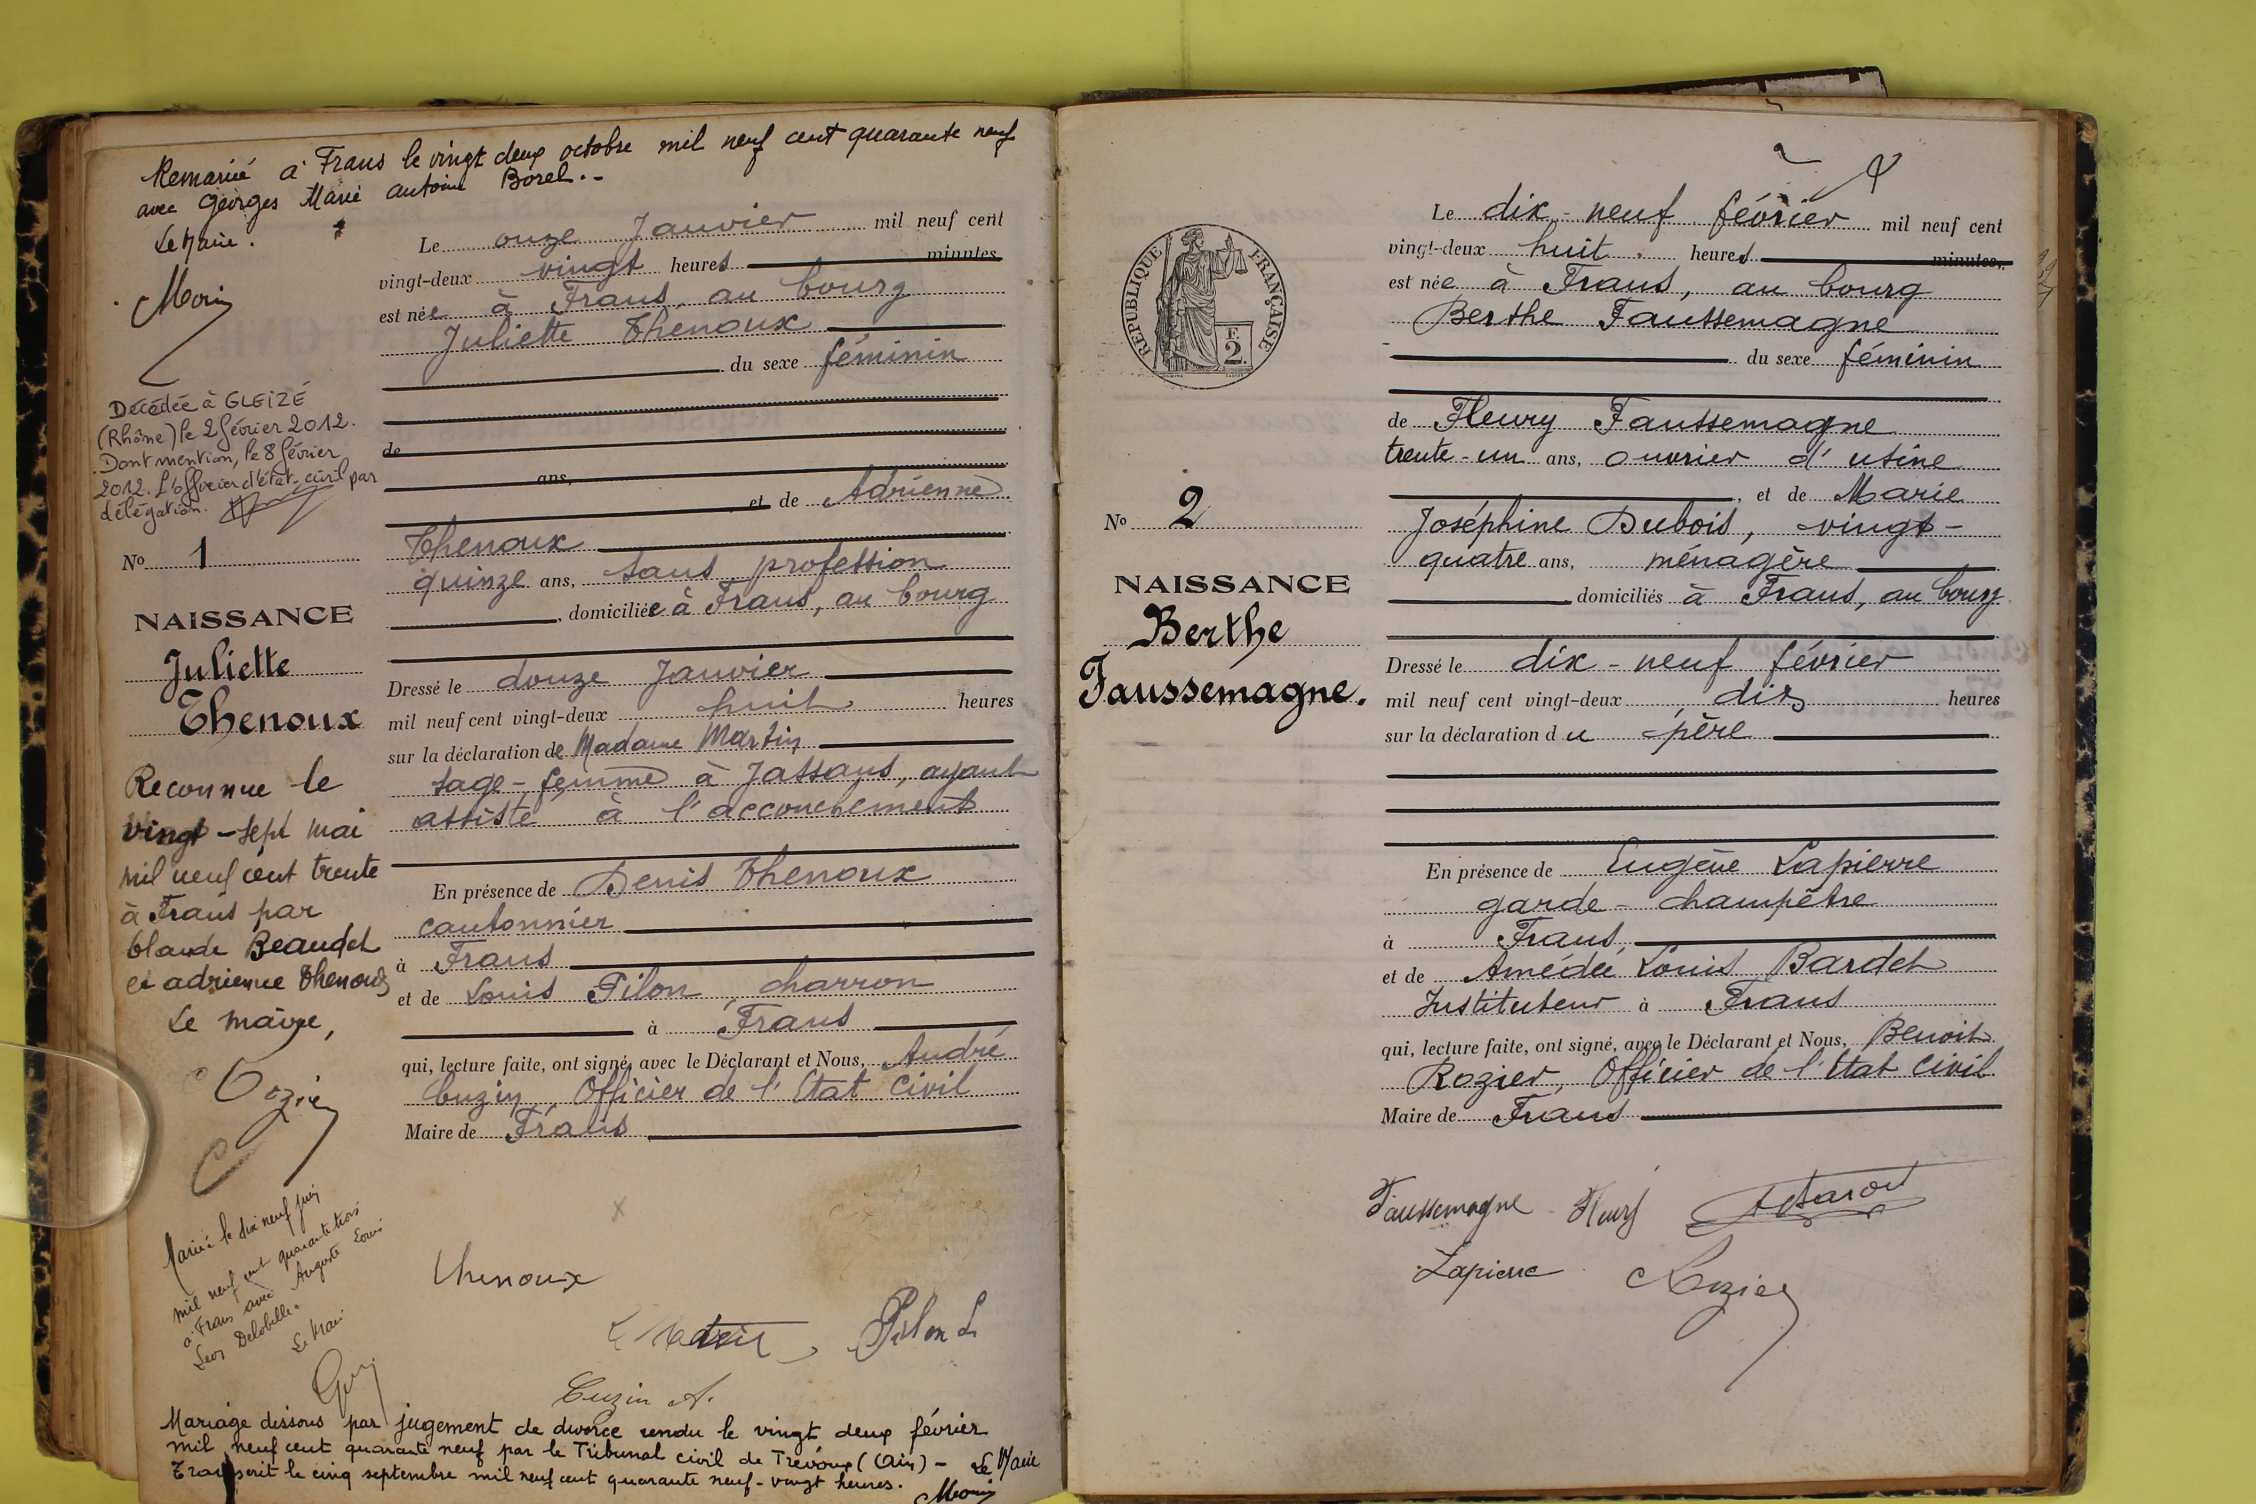 Remariée à Frans le vingt deux octobre mil neuf cent quarante neuf
avec Georges Marie Antoine Borel.-
Le Maire.
Morin
Décédée à GLEIZÉ
(Rhône) le 2 février 2012.
Dont mention, le 8 février
2012. L'officier d'état-civil par
délégation.
No 1
NAISSANCE
Juliette
Thenoux
Reconnue le
vingt-sept mai
mil neuf cent trente
à Frans par
Claude Beaudet
et adrienne Thenoux
Le maire,
Marié le dix neuf juin
mil neuf cent quarante trois
à Frans avec Auguste Louis
Léon Delobelle.
Le Maire
Le onze Janvier mil neuf cent
vingt-deux vingt heures minutes
est née à Frans, au bourg
Juliette Thénoux
du sexe féminin
de
ans,
et de Adrienne
Thenoux
quinze ans, sans profession
, domiciliée à Frans, au bourg
Dressé le douze Janvier
mil neuf cent vingt-deux huit heures
sur la déclaration de Madame Martin
sage-femme à Jassans, ayant
assisté à l'accouchement
En présence de Denis Thenoux
cantonnier
à Frans
et de Louis Pilon charron
à Frans
qui, lecture faite, ont signé, avec le Déclarant et Nous, André
Cuzin, Officier de l'Etat Civil
Maire de Frans
Thenoux
Pilon L
Cuzin A.
Mariage dissous par jugement de divorce rendu le vingt deux février
mil neuf cent quarante neuf par le Tribunal civil de Trévoux (Ain) - Le Maire
Transcrit le cinq septembre mil neuf cent quarante neuf - vingt heures.
Morin
RÉPUBLIQUE FRANÇAISE
F.
2.
No 2
NAISSANCE
Berthe
Faussemagne.
Le dix-neuf février mil neuf cent
vingt-deux huit heures minutes,
est née à Frans, au bourg
Berthe Faussemagne
du sexe féminin
de Fleury Faussemagne
trente-un ans, ouvrier d'usine
, et de Marie
Joséphine Dubois, vingt-
quatre ans, ménagère
domiciliés à Frans, au bourg
Dressé le dix-neuf février
mil neuf cent vingt-deux dix heures
sur la déclaration du père
En présence de Eugène Lapierre
garde-champêtre
à Frans,
et de Amédée Louis Bardet
Instituteur à Frans
qui, lecture faite, ont signé, avec le Déclarant et Nous, Benoit
Rozier, Officier de l'Etat Civil
Maire de Frans
Faussemagne Fleury
Lapierre Rozier